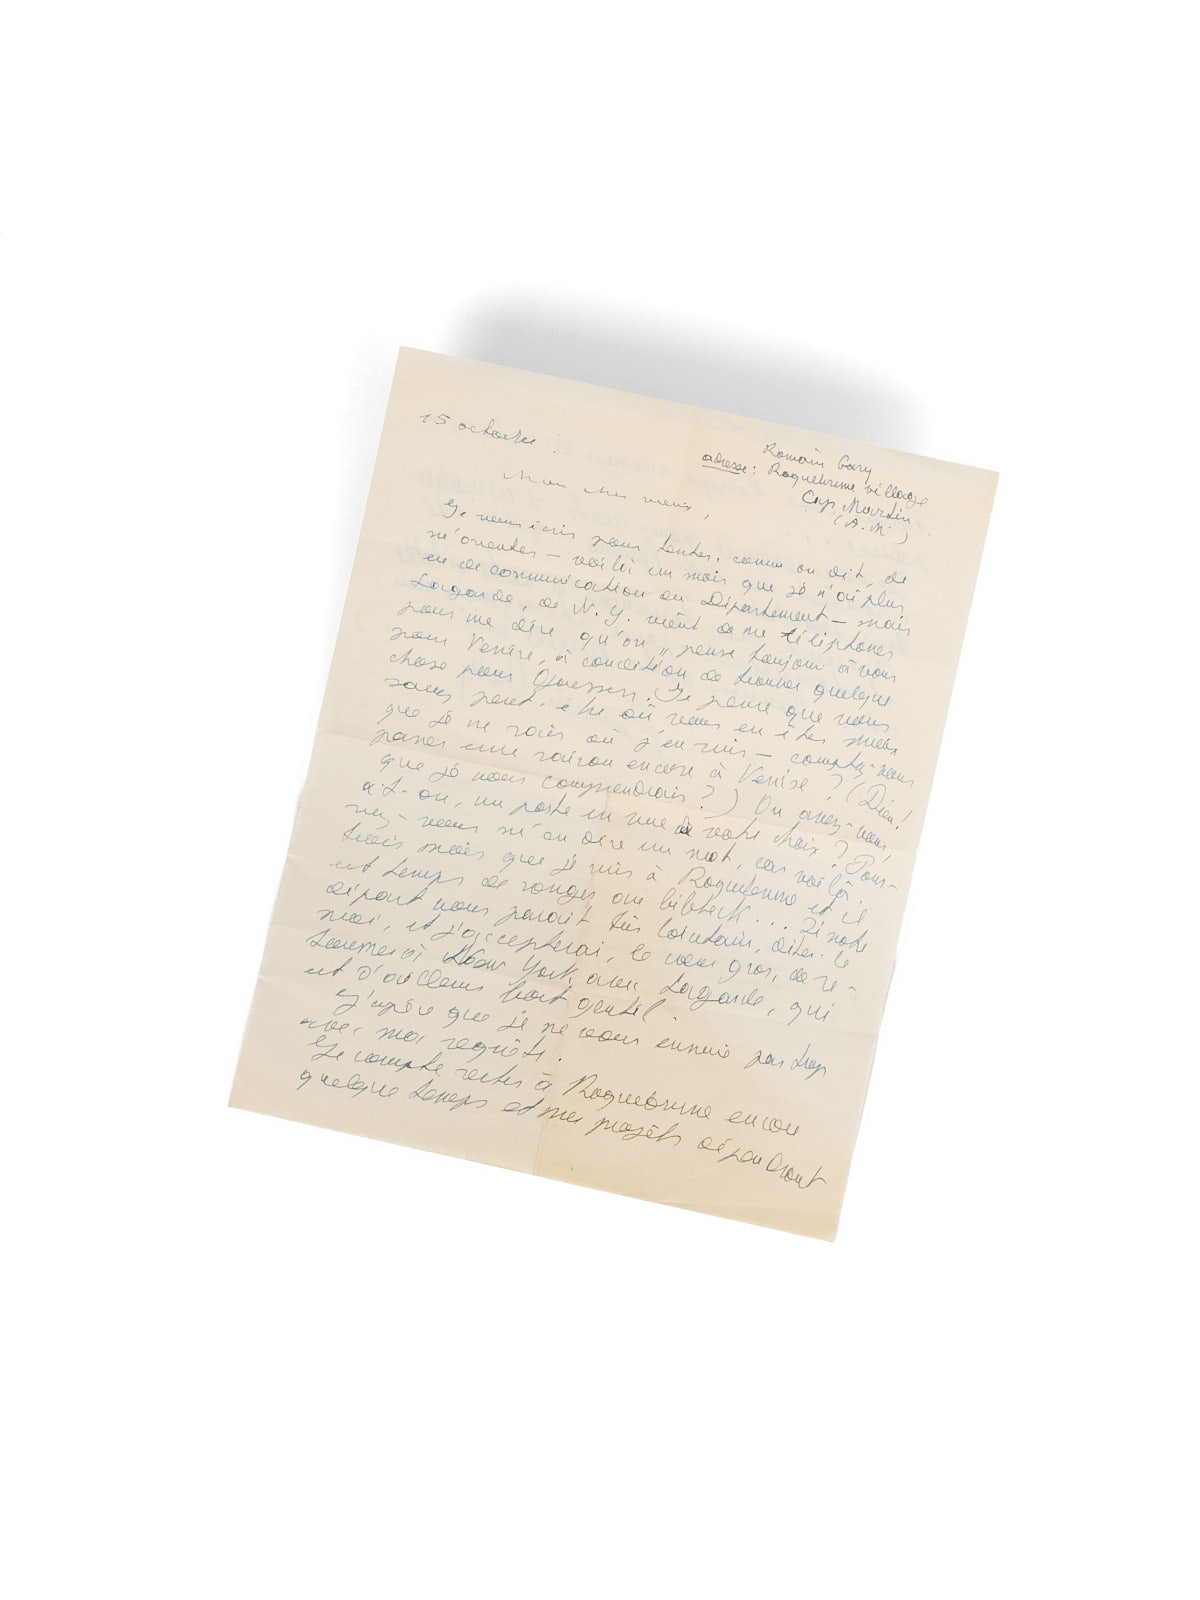 15 octobre
Romain Gary
adresse: Roquebrune village
Cap Martin
(A.M.)
Mon cher vieux,
Je vous écris pour tenter, comme on dit, de
m'orienter — voilà un mois que je n'ai plus
eu de communication du Département — mais
Lagarde, de N.Y. vient de me téléphoner
pour me dire qu'on "pense toujours à vous
pour Venise, à condition de trouver quelque
chose pour Guessen. Je pense que vous
savez peut-être où vous en êtes mieux
que je ne sais où j'en suis — comptez-vous
passer une saison encore à Venise? (Dieu!
que je vous comprendrais?) Ou avez-vous,
a-t-on, un poste en vue de votre choix? Pour-
riez-vous m'en dire un mot, car voilà
trois mois que je suis à Roquebrune et il
est temps de songer au bifteck... Si votre
départ vous parait très lointain, dites-le
moi, et j'accepterai, le cœur gros, de re-
tourner à New York avec Lagarde, qui
est d'ailleurs fort gentil.
J'espère que je ne vous ennuie pas trop
avec ma requête.
Je compte rester à Roquebrune encore
quelque temps et mes projets dépendront